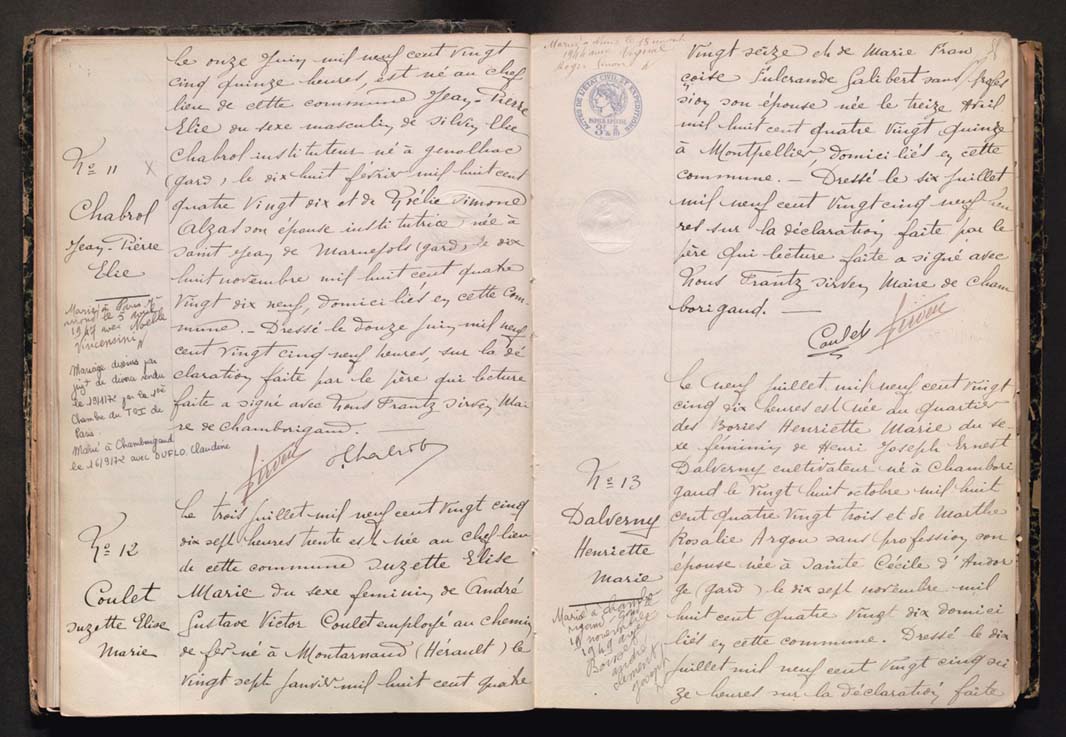 Le onze Juin mil neuf cent vingt
cinq quinze heures, est né au chef
lieu de cette commune Jean-Pierre
Elie du sexe masculin de Silvin Elie
Chabrol instituteur né à Genolhac
(gard), le dix huit février mil huit cent
quatre vingt dix et de Simone
Alzas son épouse institutrice née à
Saint Jean de Maruejols (gard), le dix
huit novembre mil huit cent quatre
vingt dix neuf, domiciliés en cette com
mune. — Dressé le douze juin mil neuf
cent vingt cinq neuf heures, sur la dé
claration faite par le père qui lecture
faite a signé avec Nous Frantz Sirven Mai
re de Chamborigaud. —
Sirven
Chabrol
No 11
Chabrol
Jean-Pierre
Elie
Marié à Paris
le 5 avril
1947 avec Noëlle
Vincensini
Mariage dissous par
jugt de divorce rendu
le 19/1/72 par la 1ère
Chambre du TGI de
Paris.
Marié à Chamborigaud
le 16/9/72 avec DUFLO Claudine
No 12
Coulet
Suzette Elise
Marie
Le trois juillet mil neuf cent vingt cinq
dix sept heures trente est née au chef-lieu
de cette commune Suzette Elise
Marie du sexe féminin de André
Gustave Victor Coulet employé au chemin
de fer né à Montarnaud (Hérault) le
vingt sept janvier mil huit cent quatre
1944 avec
Roger Simon
ACTES DE L'ETAT CIVIL ET EXPEDITIONS
vingt seize et de Marie Fran
çoise Fulcrande Galibert sans profes
sion son épouse née le treize Avril
mil huit cent quatre vingt quinze
à Montpellier, domiciliés en cette
commune. — Dressé le six juillet
mil neuf cent vingt cinq neuf heu
res sur la déclaration faite par le
père qui lecture faite a signé avec
Nous Frantz Sirven Maire de Cham
borigaud. —
Coulet
Sirven
No 13
Dalverny
Henriette
Marie
Marié à Chambo
rigaud
19 novembre
1949 avec
André
Clément
Le neuf juillet mil neuf cent vingt
cinq dix heures est née au quartier
des Bories Henriette Marie du se-
xe féminin de Henri Joseph Ernest
Dalverny cultivateur né à Chambori
gaud le vingt huit octobre mil huit
cent quatre vingt trois et de Marthe
Rosalie Argon sans profession son
épouse née à Sainte Cécile d'Andor
ge (gard) le dix sept novembre mil
huit cent quatre vingt dix domici
liés en cette commune. Dressé le dix
juillet mil neuf cent vingt cinq sei
ze heures sur la déclaration faite